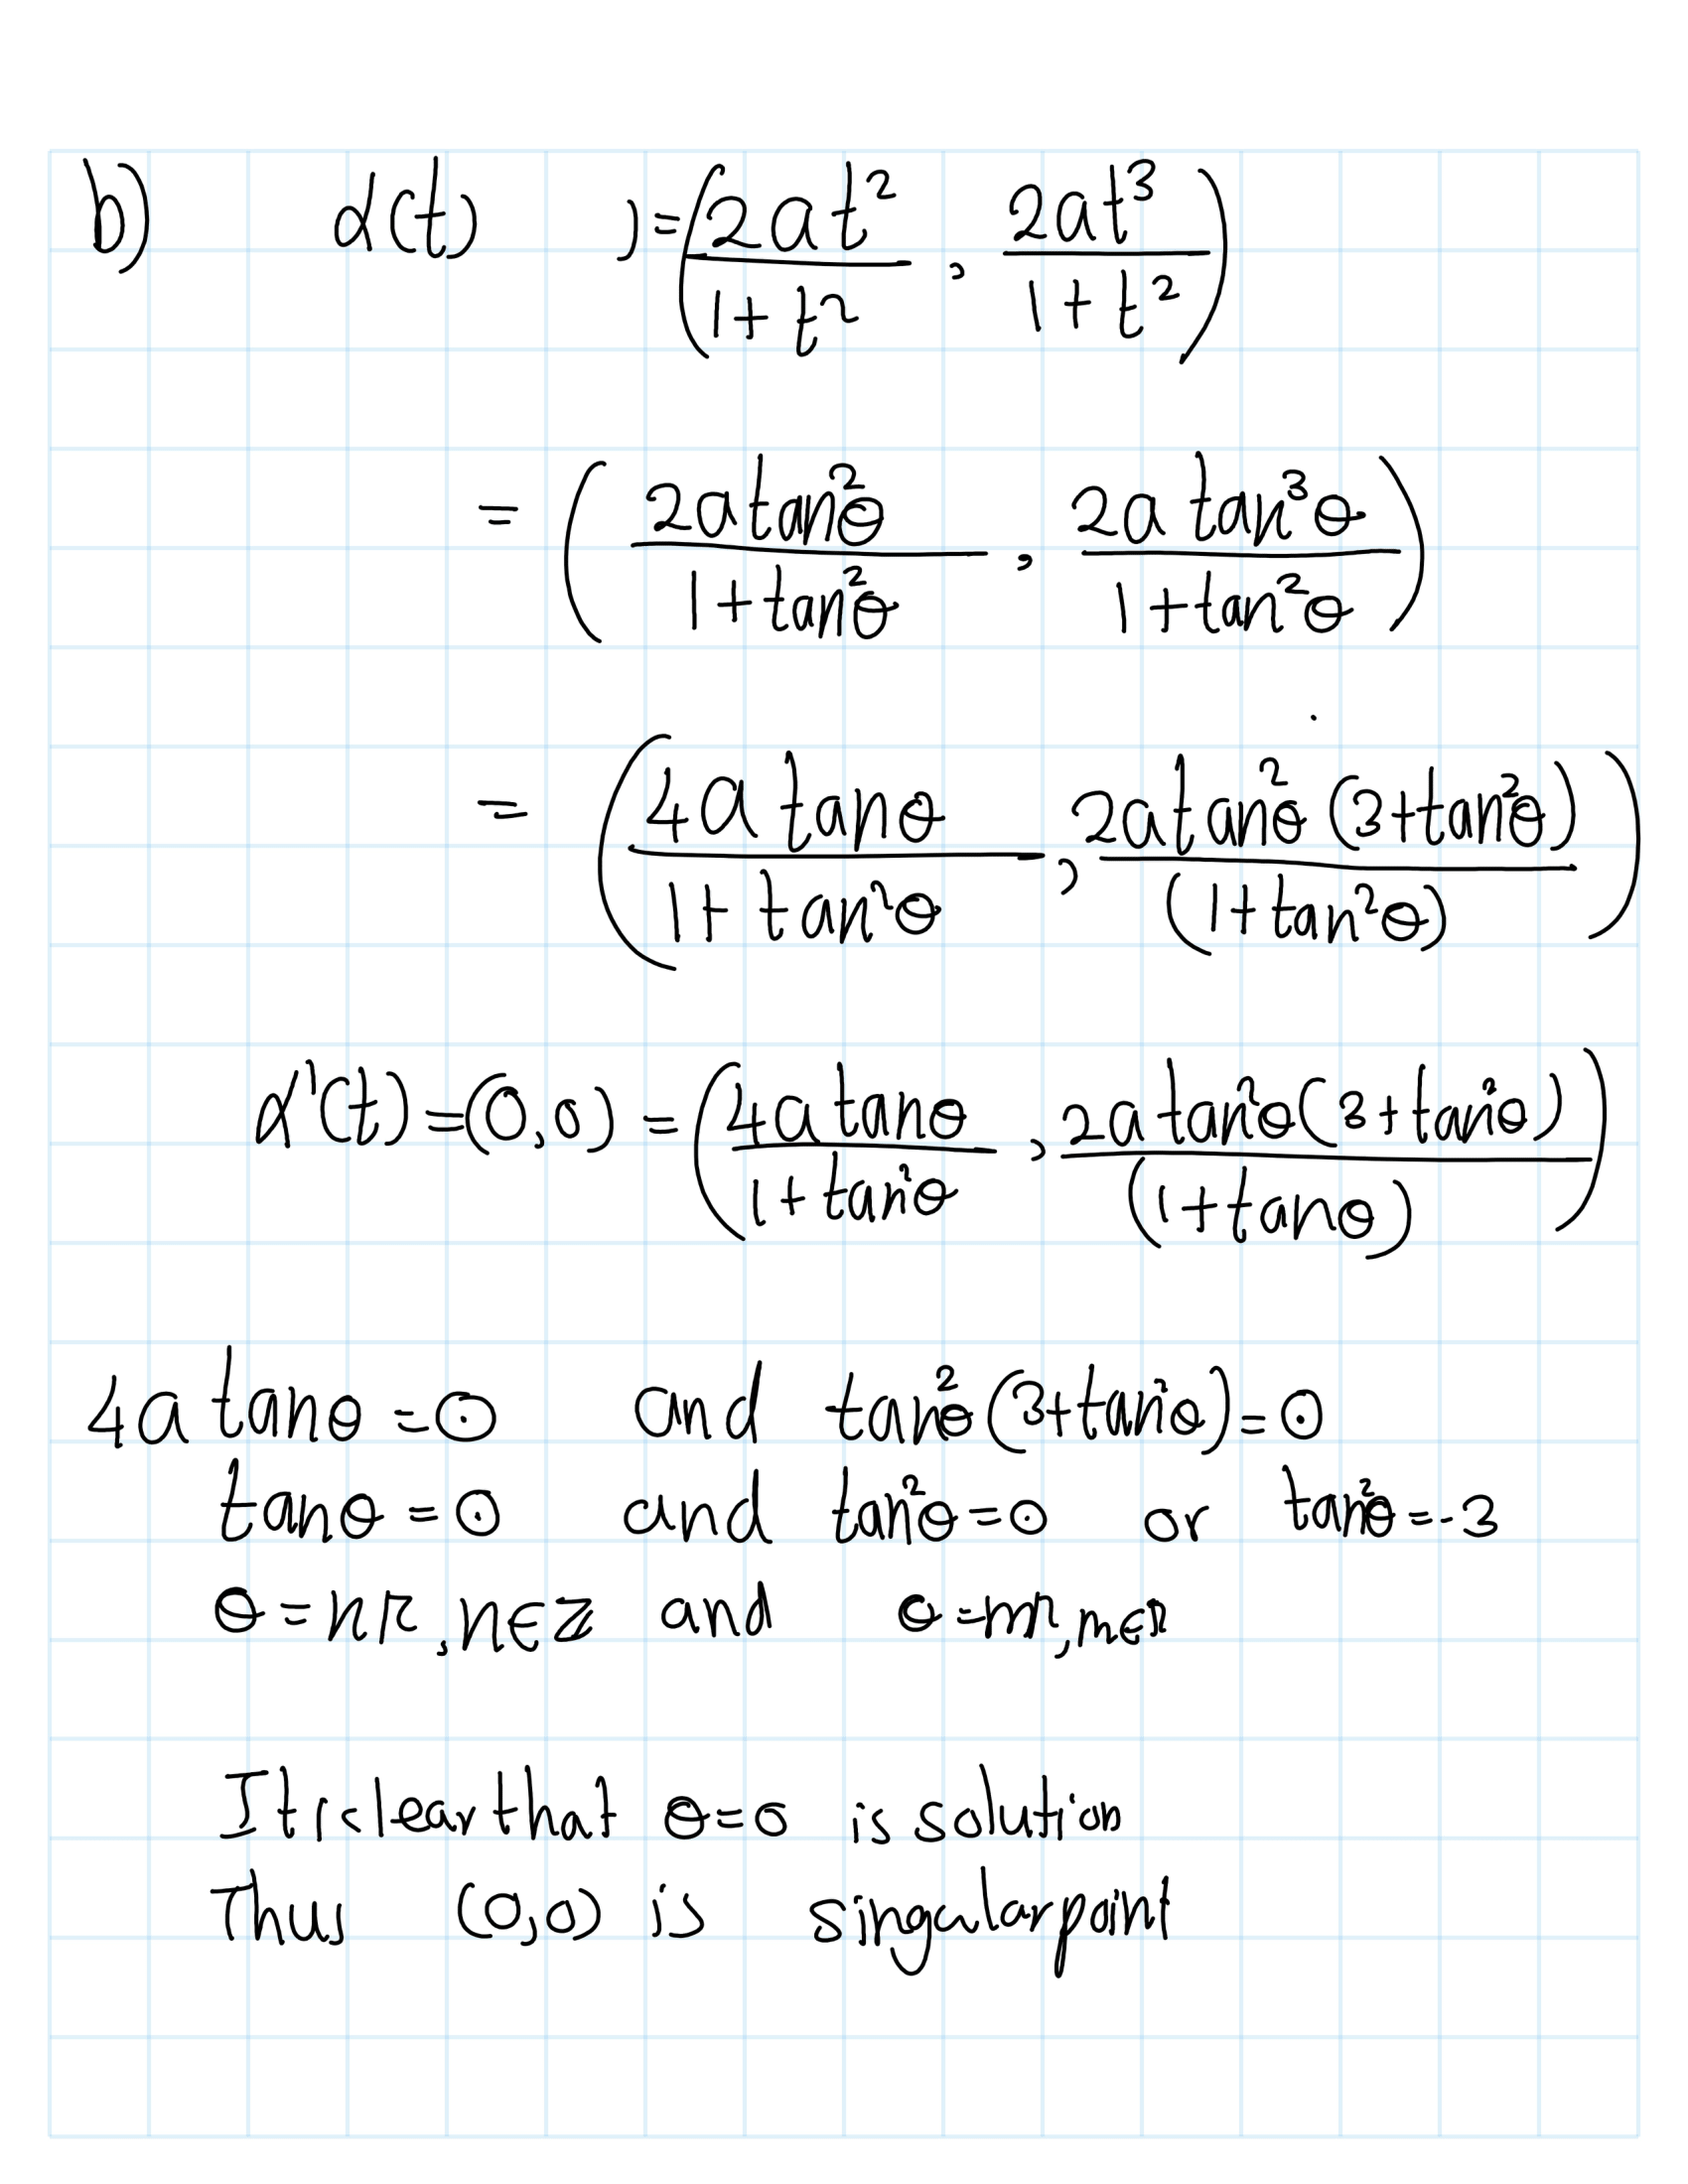 b) α(t) )=(2at²/(1+t²), 2at³/(1+t²))
= (2a tan²θ/(1+tan²θ), 2a tan³θ/(1+tan²θ))
= (4a tanθ/(1+tan²θ), 2a tan²θ(3+tan²θ)/(1+tan²θ))
α'(t)=(0,0) = (4a tanθ/(1+tan²θ), 2a tan²θ(3+tan²θ)/(1+tanθ))
4a tanθ=0 and tan²θ(3+tan²θ)=0
tanθ=0 and tan²θ=0 or tan²θ=-3
θ=nπ, n∈Z and θ=mπ, m∈
It clear that θ=0 is solution
Thus (0,0) is singular point